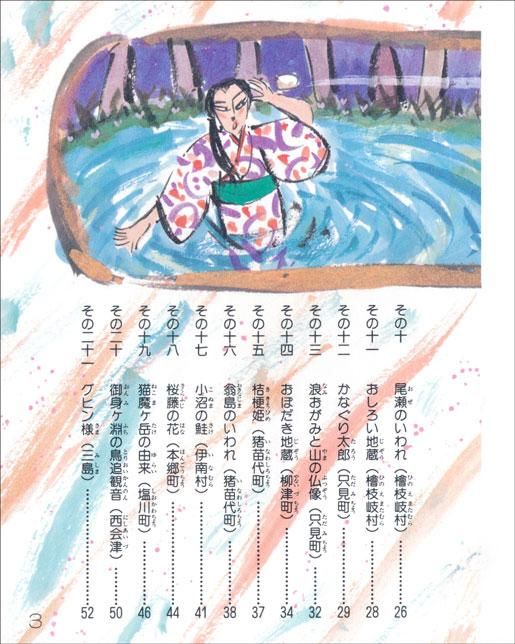 その十 尾瀬のいわれ（檜枝岐村）……………26
その十一 おしろい地蔵（檜枝岐村）……………28
その十二 かなぐり太郎（只見町）……………29
その十三 浪おがみと山の仏像（只見町）……………32
その十四 おぼだき地蔵（柳津町）……………34
その十五 桔梗姫（猪苗代町）……………37
その十六 翁島のいわれ（猪苗代町）……………38
その十七 小沼の鮭（伊南村）……………41
その十八 桜藤の花（本郷町）……………44
その十九 猫魔ヶ岳の由来（塩川町）……………46
その二十 御身ヶ淵の鳥追観音（西会津）……………50
その二十一 グヒン様（三島）……………52
3